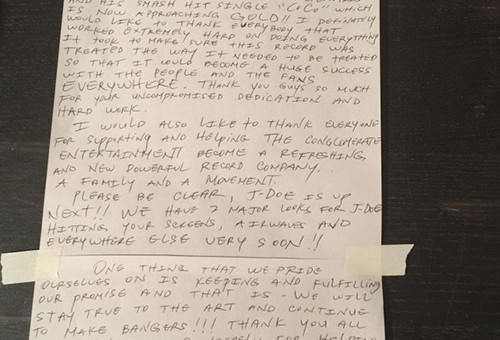 AND HIS SMASH HIT SINGLE "COCO" WHICH
IS NOW APPROACHING GOLD!! I DEFINATELY
WOULD LIKE TO THANK EVERYBODY THAT
WORKED EXTREMELY HARD ON DOING EVERYTHING
IT TOOK TO MAKE SURE THIS RECORD WAS
TREATED THE WAY IT NEEDED TO BE TREATED
SO THAT IT WOULD BECOME A HUGE SUCCESS
WITH THE PEOPLE AND THE FANS
EVERYWHERE. THANK YOU GUYS SO MUCH
FOR YOUR UNCOMPROMISED DEDICATION AND
HARD WORK.
I WOULD ALSO LIKE TO THANK EVERYONE
FOR SUPPORTING AND HELPING THE CONGLOMERATE
ENTERTAINMENT BECOME A REFRESHING
AND NEW POWERFUL RECORD COMPANY,
A FAMILY AND A MOVEMENT.
PLEASE BE CLEAR, J-DOE IS UP
NEXT!! WE HAVE 2 MAJOR LOOKS FOR J-DOE
HITTING YOUR SCREENS, AIRWAVES AND
EVERYWHERE ELSE VERY SOON!!
ONE THING THAT WE PRIDE
OURSELVES ON IS KEEPING AND FULFILLING
OUR PROMISE AND THAT IS - WE WILL
STAY TRUE TO THE ART AND CONTINUE
TO MAKE BANGERS!!! THANK YOU ALL
FOR HELPING